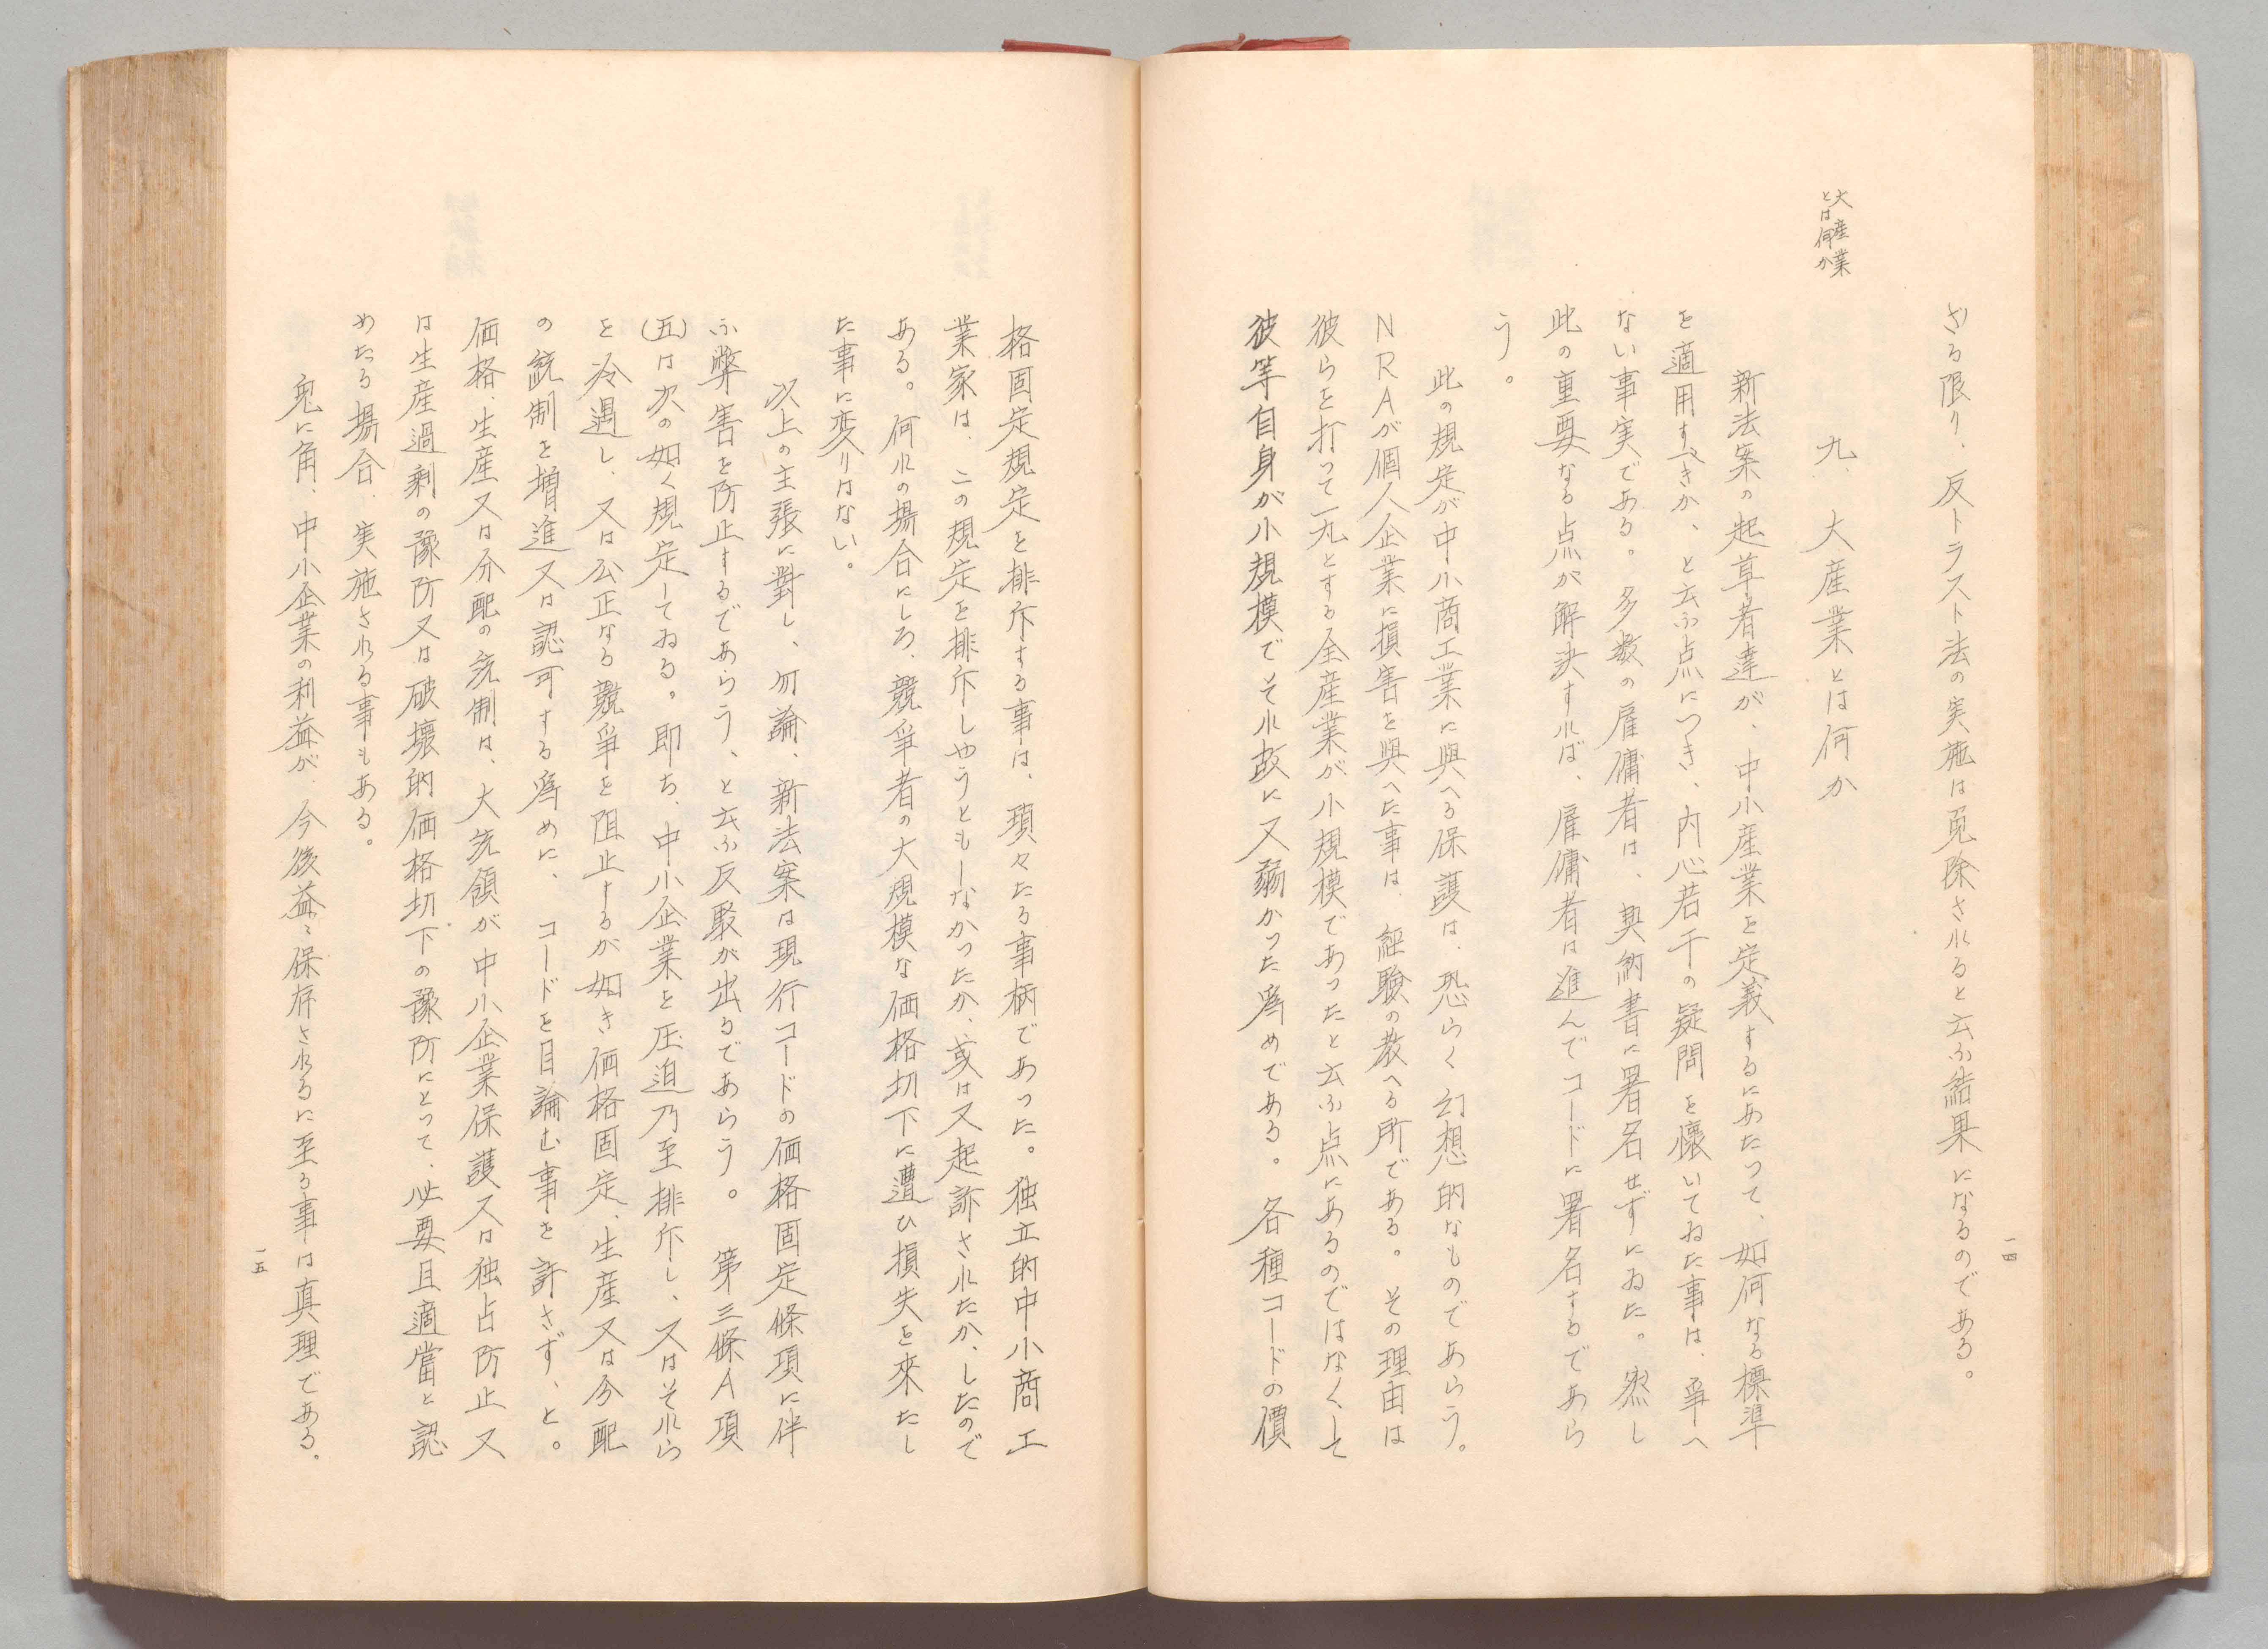 ざる限り、反トラスト法の実施は免除されると云ふ結果になるのである。
一四
大産業
とは何か
九、大産業とは何か
新法案の起草者達が、中小産業を定義するにあたつて、如何なる標準
を適用すべきか、と云ふ点につき、内心若干の疑問を懐いてゐた事は、爭へ
ない事実である。多数の雇傭者は、契約書に署名せずにゐた。然し
此の重要なる点が解決すれば、雇傭者は進んでコードに署名するであら
う。
此の規定が中小商工業に與へる保護は、恐らく幻想的なものであらう。
NRAが個人企業に損害を與へた事は、経験の教へる所である。その理由は
彼らを打つて一丸とする全産業が、小規模であつたと云ふ点にあるのではなくして
彼等自身が小規模でそれ故に又弱かつた爲めである。各種コードの價
格固定規定を排斥する事は、瑣々たる事柄であつた。独立的中小商工
業家は、この規定を排斥しやうともしなかつたか、或は又起訴されたか、したので
ある。何れの場合にしろ、競爭者の大規模な価格切下に遭ひ損失を來たし
た事に変りはない。
以上の主張に對し、勿論、新法案は現行コードの価格固定條項に伴
ふ弊害を防止するであらう、と云ふ反駁が出るであらう。第三條A項
(五)は次の如く規定してゐる。即ち、中小企業を圧迫乃至排斥し、又はそれら
を冷遇し、又は公正なる競爭を阻止するが如き価格固定、生産又は分配
の統制を増進又は認可する爲めに、コードを目論む事を許さず、と。
価格、生産又は分配の統制は、大統領が中小企業保護又は独占防止又
は生産過剰の豫防又は破壊的価格切下の豫防にとつて、必要且適當と認
めたる場合、実施される事もある。
兎に角、中小企業の利益が、今後益々保存されるに至る事は真理である。
一五